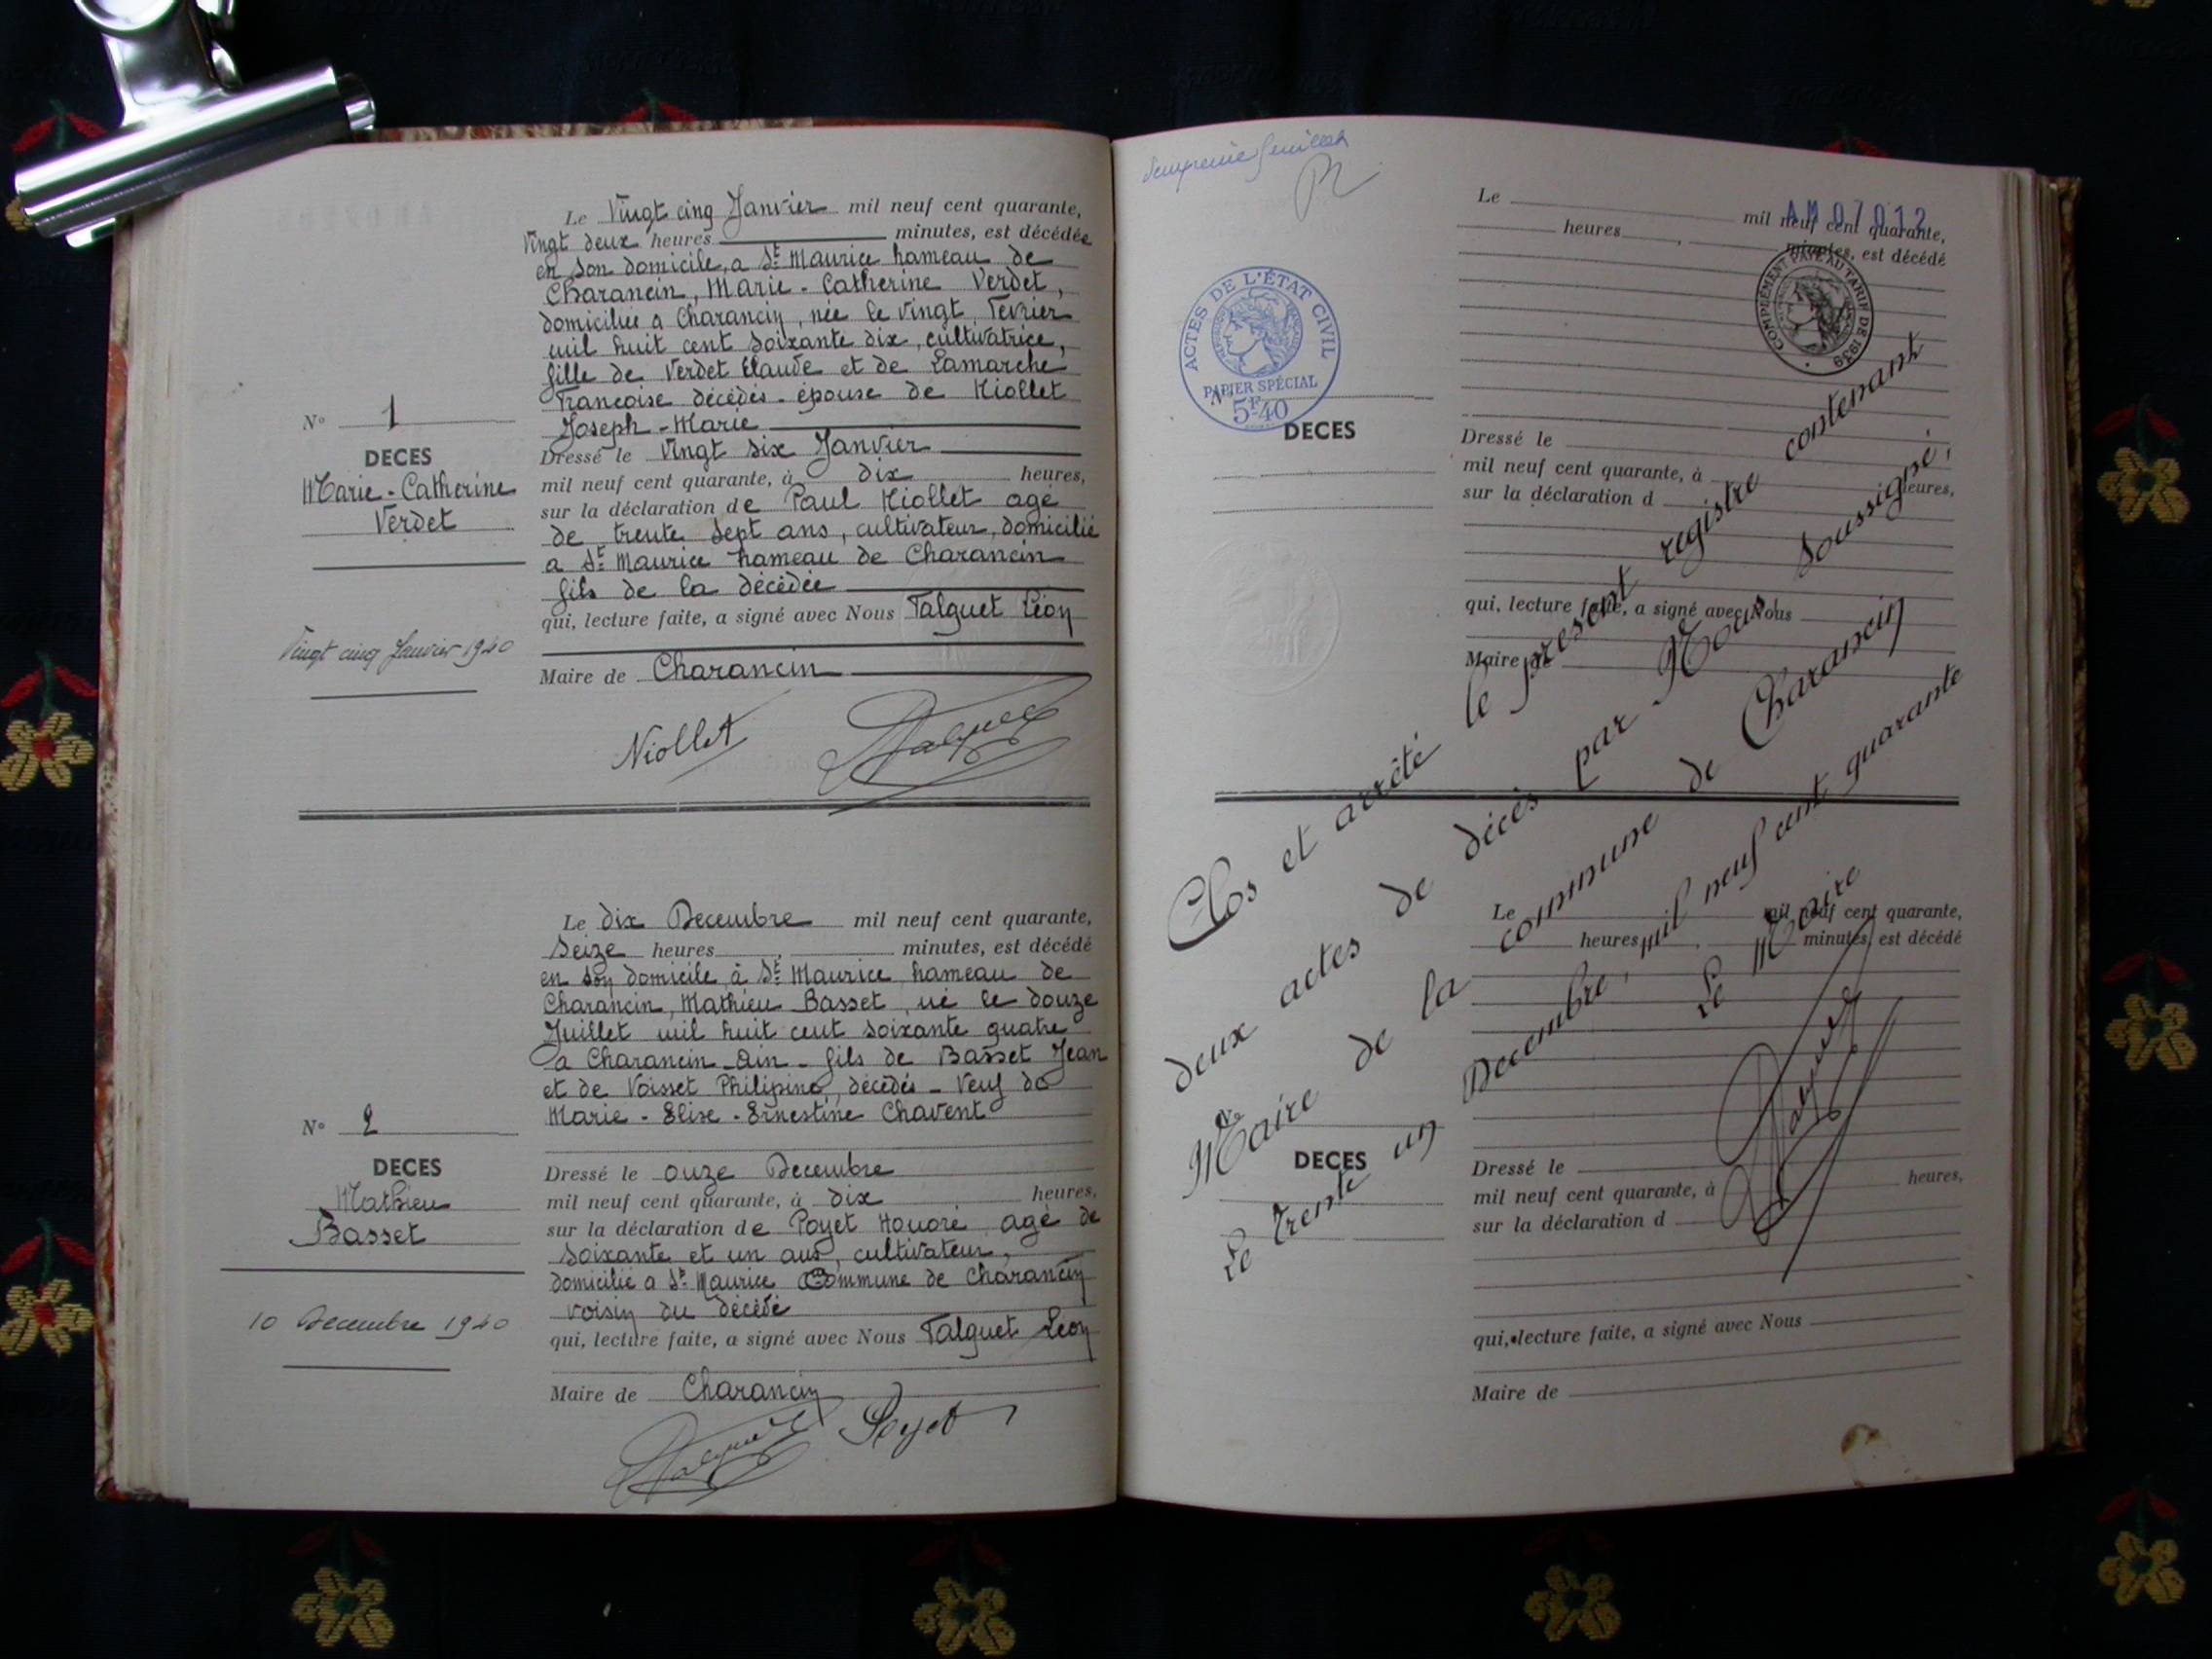 Le Vingt cinq Janvier mil neuf cent quarante,
Vingt deux heures minutes, est décédée
en son domicile, a St Maurice hameau de
Charancin, Marie-Catherine Verdet,
domiciliée a Charancin, née le vingt Fevrier
mil huit cent soixante dix, cultivatrice,
fille de Verdet Claude et de Lamarche
Francoise décédés - épouse de Niollet
Joseph-Marie
N° 1
DECES
Marie-Catherine
Verdet
Vingt cinq Janvier 1940
Dressé le Vingt six Janvier
mil neuf cent quarante, à dix heures,
sur la déclaration de Paul Niollet agé
de trente sept ans, cultivateur, domicilié
a St Maurice hameau de Charancin
fils de la décédée
qui, lecture faite, a signé avec Nous Talguet Léon
Maire de Charancin
Niollet Talguet
Le dix Decembre mil neuf cent quarante,
Seize heures minutes, est décédé
en son domicile à St Maurice hameau de
Charancin, Mathieu Basset, né le douze
Juillet mil huit cent soixante quatre
a Charancin Ain - fils de Basset Jean
et de Voisset Philipine, décédés - Veuf de
Marie-Elise-Ernestine Chavent
N° 2
DECES
Mathieu
Basset
10 Decembre 1940
Dressé le onze Decembre
mil neuf cent quarante, à dix heures,
sur la déclaration de Poyet Honoré agé de
soixante et un ans, cultivateur,
domicilié a St Maurice Commune de Charancin
voisin du décédé
qui, lecture faite, a signé avec Nous Talguet Léon
Maire de Charancin
Talguet Poyet
AM 07012
Le mil neuf cent quarante,
heures, minutes, est décédé
COMPLÉMENT PAYÉ AU TARIF DE 1939
ACTES DE L'ÉTAT CIVIL
PAPIER SPÉCIAL
5F40
N°
DECES
Dressé le
mil neuf cent quarante, à heures,
sur la déclaration d
qui, lecture faite, a signé avec Nous
Maire de
Clos et arrêté le présent registre contenant
deux actes de décès par Nous soussigné,
Maire de la commune de Charancin
Le Trente un Decembre, mil neuf cent quarante
Le Maire
Talguet
Le mil neuf cent quarante,
heures, minutes, est décédé
N°
DECES
Dressé le
mil neuf cent quarante, à heures,
sur la déclaration d
qui, lecture faite, a signé avec Nous
Maire de